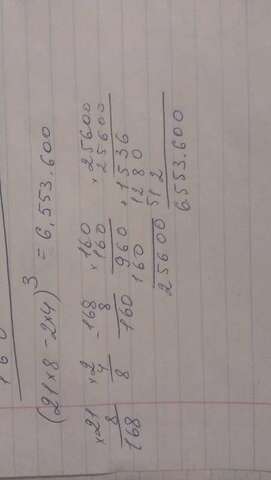 (21×8 -2×4)³ = 6,553.600
×21
8
168
×2
4
8
-168
8
160
×160
×160
960
160
25600
×25600
25600
+1536
1280
512
6553.600